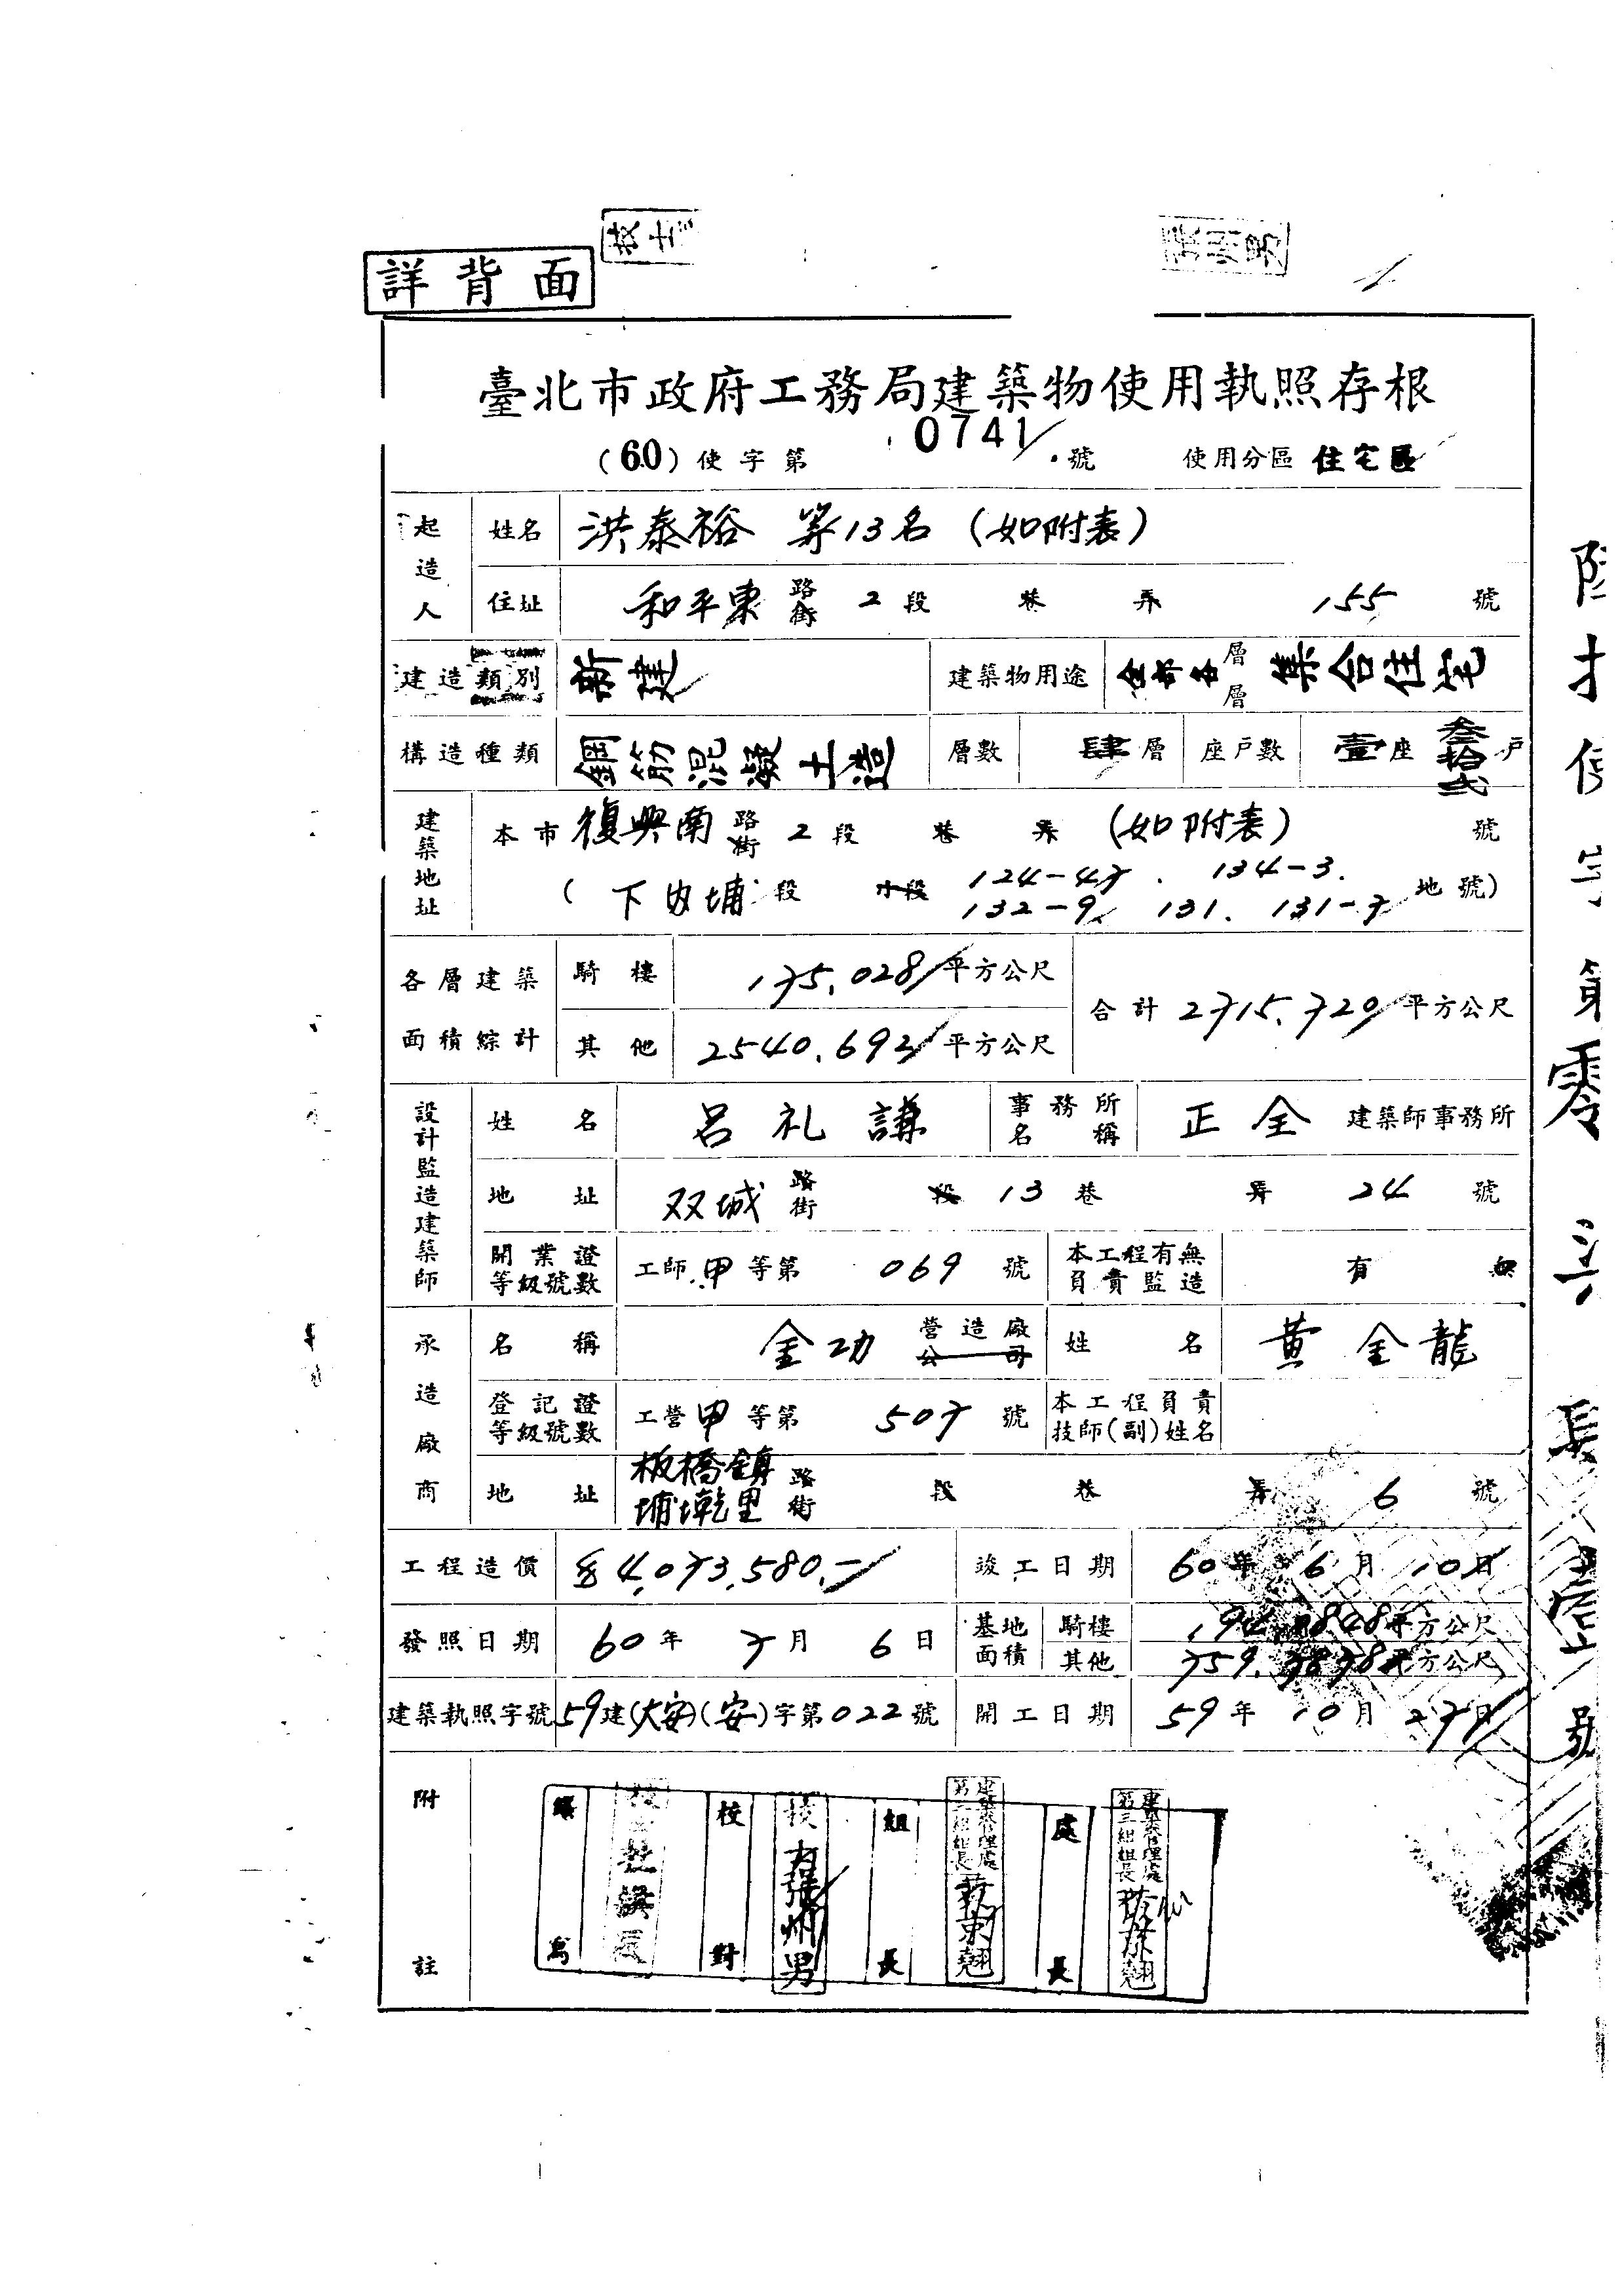 詳背面
臺北市政府工務局建築物使用執照存根
(60)使字第 0741 號 使用分區 住宅區
起造人 姓名 洪泰裕 等13名(如附表)
住址 和平東 路街 2段 巷 弄 155 號
建造類別 新建 建築物用途 全部各層層 集合住宅
構造種類 鋼筋混凝土造 層數 肆層 座戶數 壹座 叁拾弍戶
建築地址 本市復興南 路街 2段 巷 弄 (如附表) 號
(下內埔段 小段 124-47. 134-3. 132-9. 131. 131-7 地號)
各層建築面積綜計 騎樓 175.028平方公尺 合計 2715.720平方公尺
其他 2540.692平方公尺
設計監造建築師 姓名 呂礼謙 事務所名稱 正全 建築師事務所
地址 双城 路街 段 13巷 弄 24 號
開業證等級號數 工師甲等第 069 號 本工程有無負責監造 有 無
承造廠商 名稱 金功 營造廠公司 姓名 黃金龍
登記證等級號數 工營甲等第 507 號 本工程負責技師(副)姓名
地址 板橋鎮埔墘里 路街 段 巷 弄 6 號
工程造價 4,073,580.- 竣工日期 60年 6月 10日
發照日期 60年 7月 6日 基地面積 騎樓 平方公尺
其他 平方公尺
建築執照字號 59建(大安)(安)字第022號 開工日期 59年 10月 27日
附註
繕寫 校對 張炳男 組長 處長
建築管理處第三組組長